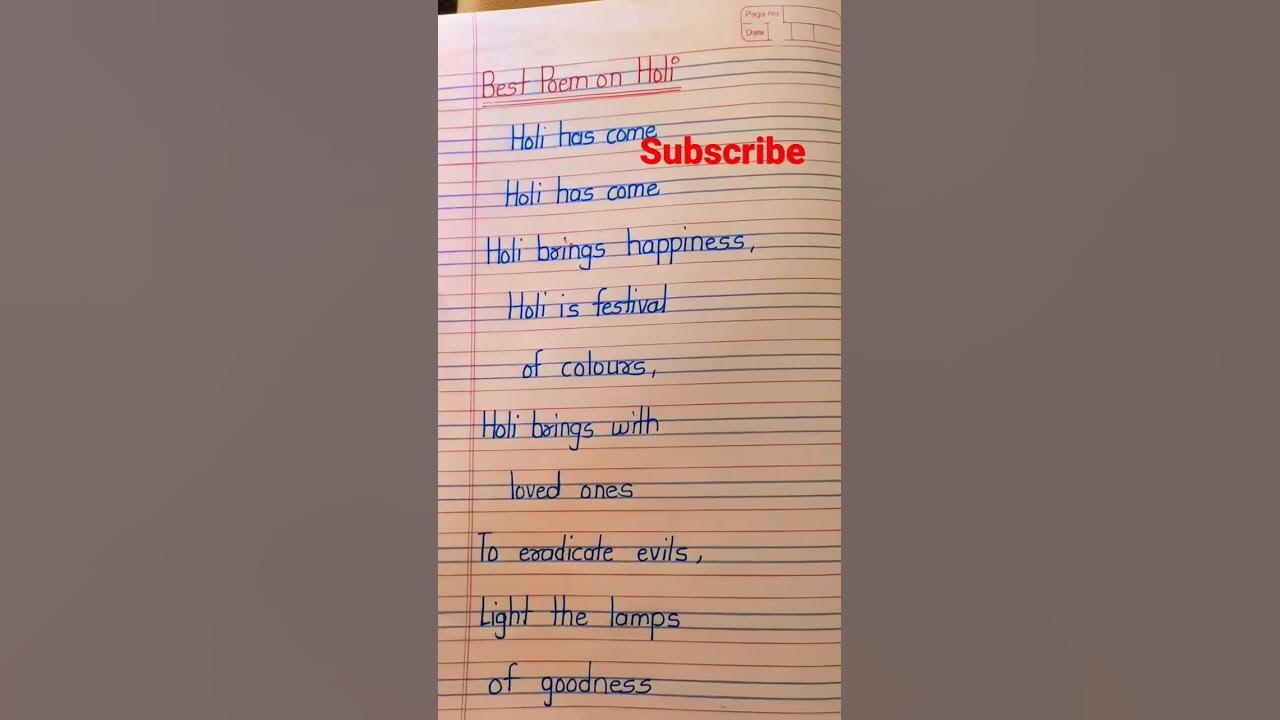 Page No
Date
Best Poem on Holi
Holi has come
Subscribe
Holi has come
Holi brings happiness,
Holi is festival
of colours,
Holi brings with
loved ones
To eradicate evils,
Light the lamps
of goodness